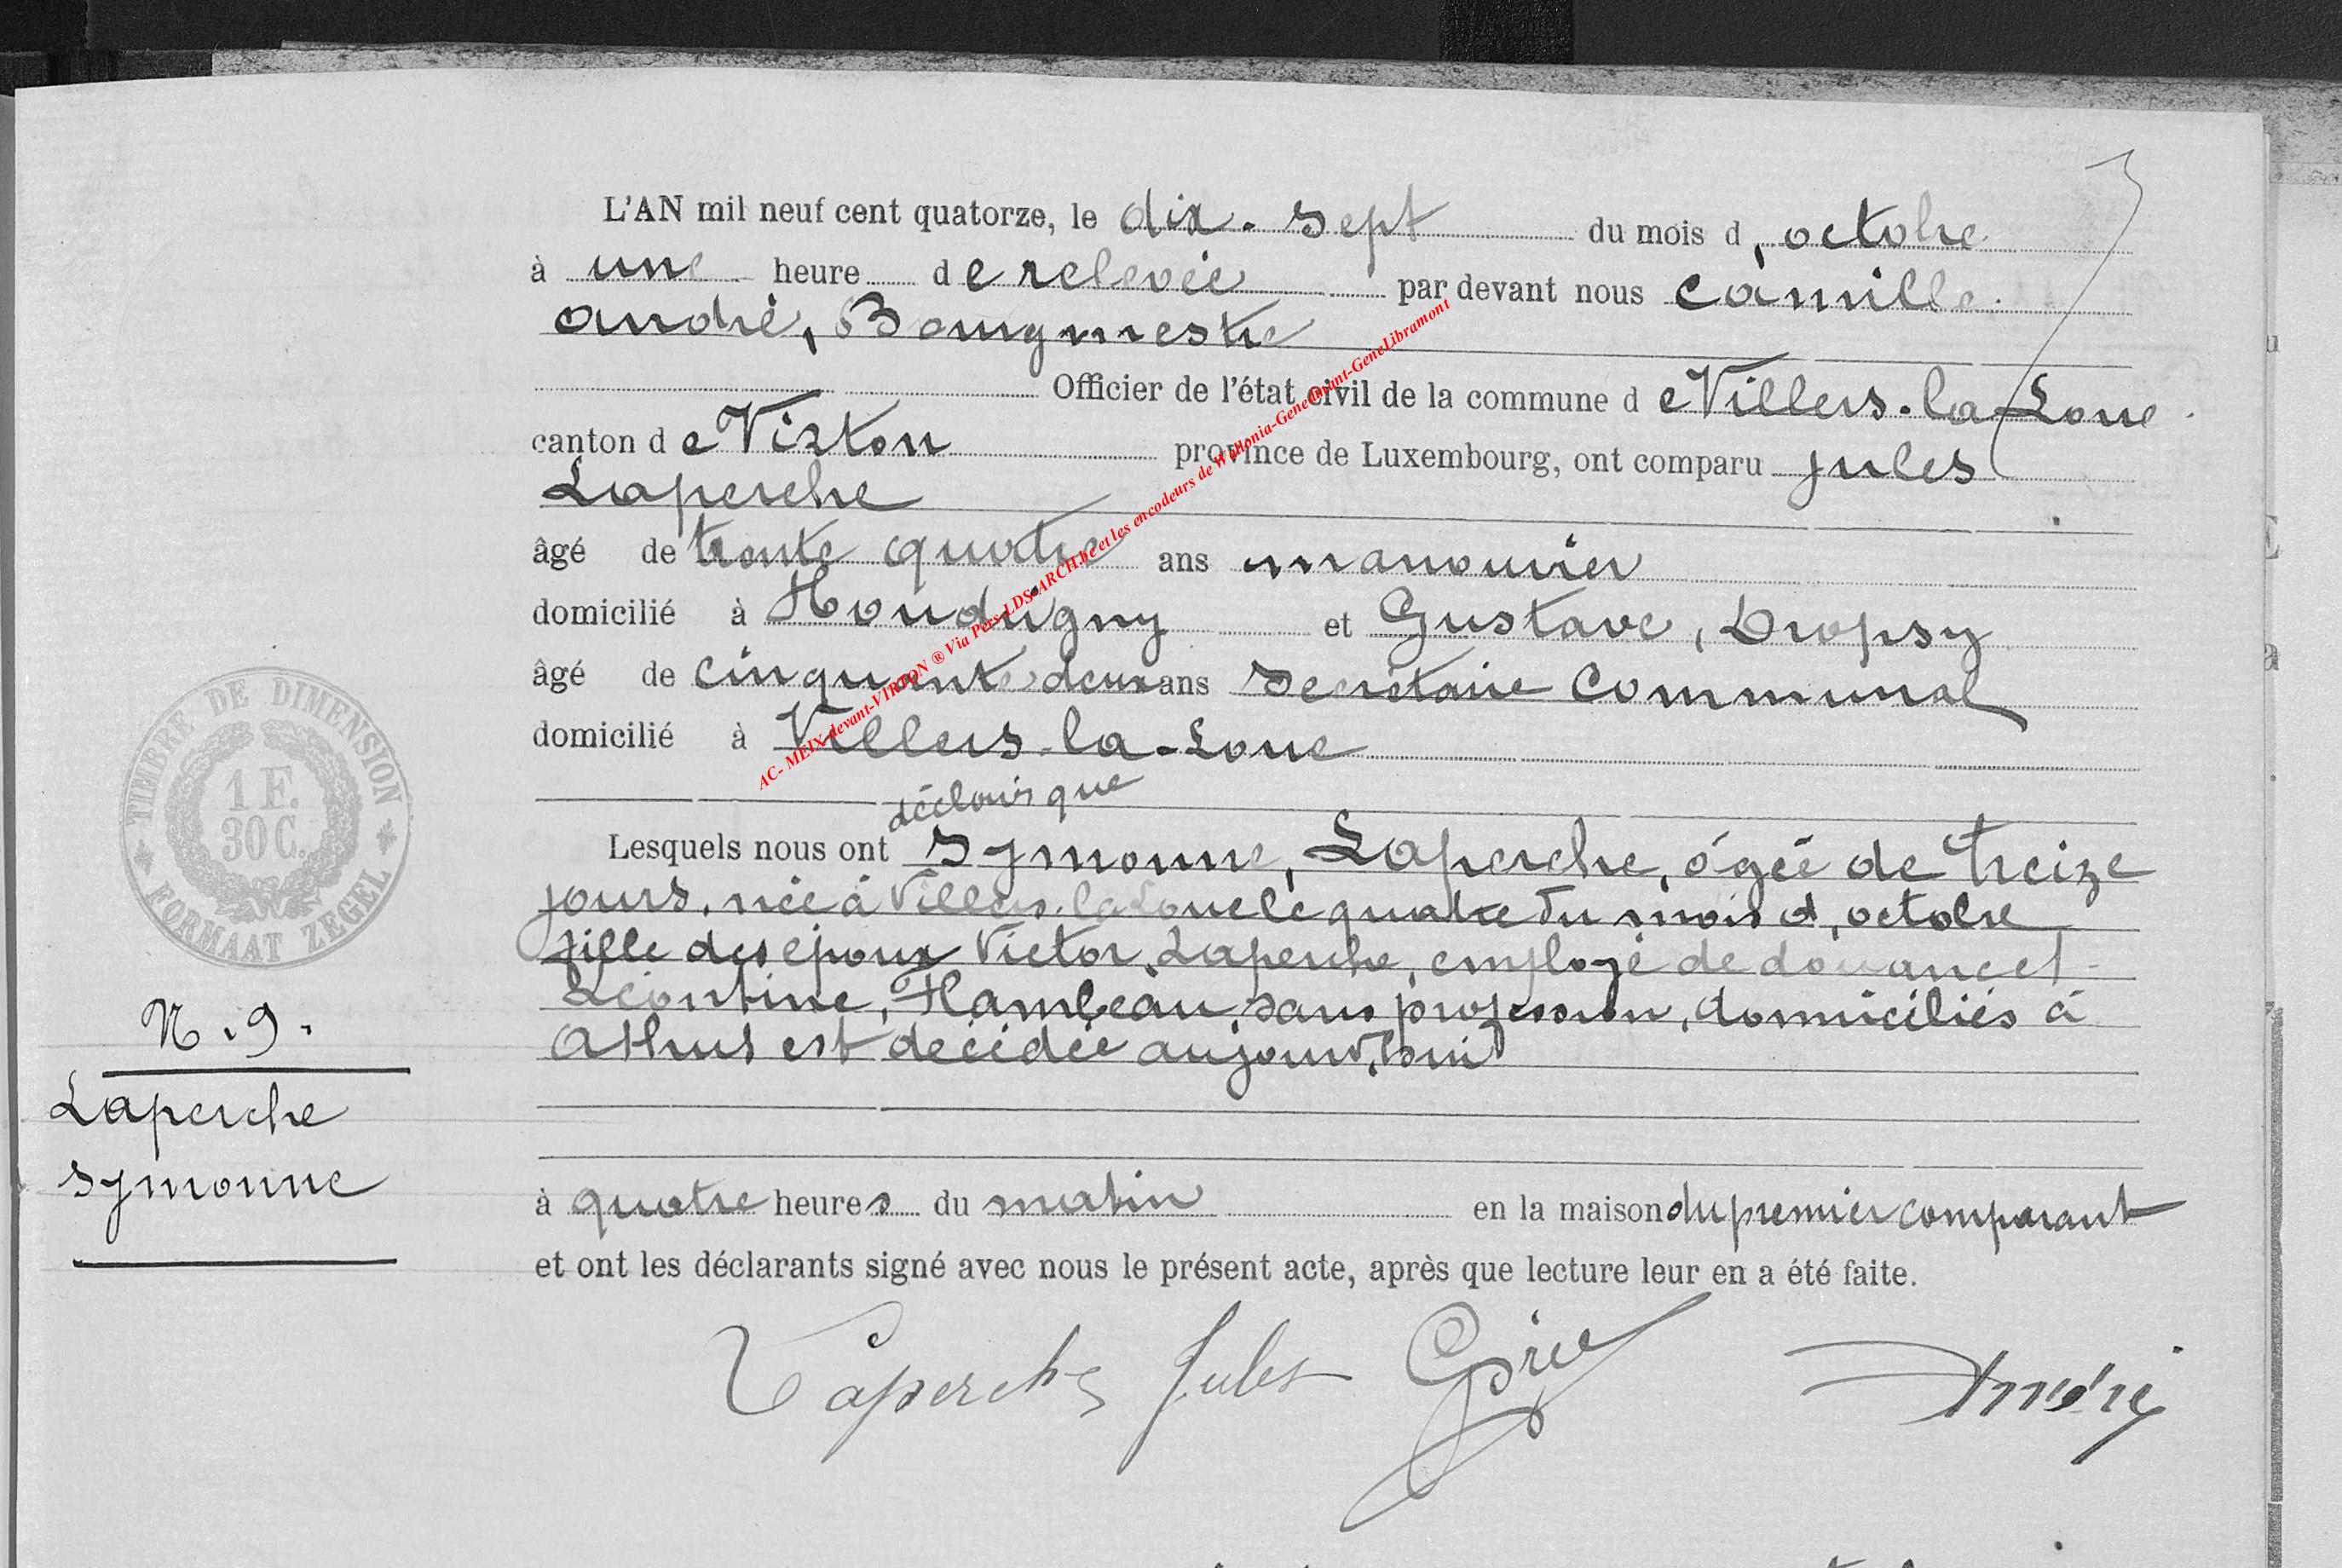 L'AN mil neuf cent quatorze, le dix-sept du mois d'octobre
à une heure de relevée par devant nous Camille
André, Bourgmestre
Officier de l'état civil de la commune de Villers-la-Loue
canton de Virton province de Luxembourg, ont comparu Jules
Laperche
âgé de trente quatre ans manouvrier
domicilié à Houdrigny et Gustave, Dropsy
âgé de cinquante deux ans secrétaire communal
domicilié à Villers-la-Loue
déclaré que
Lesquels nous ont Symonne, Laperche, âgée de treize
jours, née à Villers-la-Loue le quatre du mois d'octobre
fille des époux Victor, Laperche, employé de douane et
Léontine, Flambeau, sans profession, domiciliés à
Athus est décédée aujourd'hui
à quatre heures du matin en la maison du premier comparant
et ont les déclarants signé avec nous le présent acte, après que lecture leur en a été faite.
Laperche Jules
André
N. 9.
Laperche
Symonne
TIMBRE DE DIMENSION
1 F.
30 C.
FORMAAT ZEGEL
AC- MEIX-devant-VIRTON ® Via Pers-LDS-ARCH.be et les encodeurs de Wallonia-Genedinant-GeneLibramont